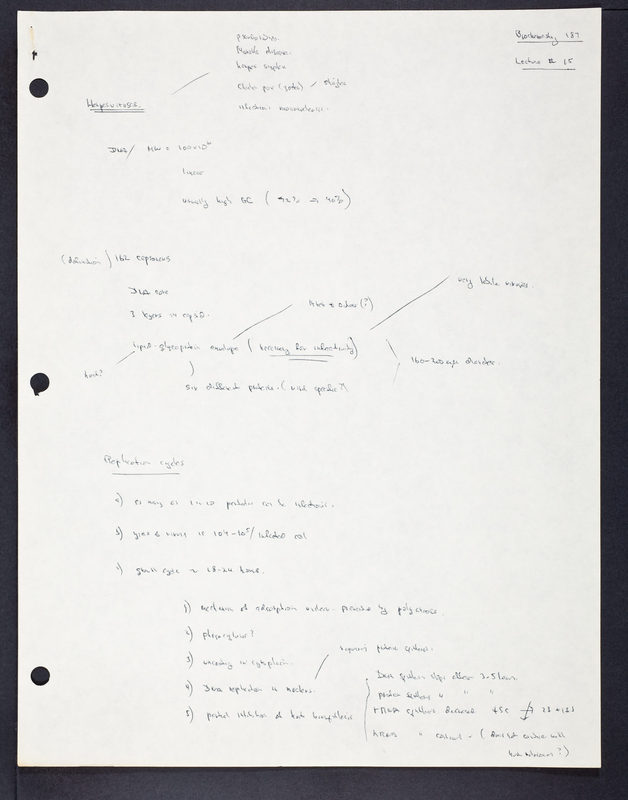 Biochemistry 187
Lecture # 15
Marek's disease.
herpes simplex
chicken pox (zoster) / shingles
infectious mononucleosis.
Herpesviruses.
DNA / MW = 100 x 10
linear
usually high GC (
(definition) 162 capsomeres
DNA core
3 layers in capsid.
very labile viruses.
lipid-glycoprotein envelope (necessary for infectivity)
host?
six different proteins. (virus specific?)
Replication cycles
a) as many as particles can be infectious.
b) yield of virus is 10^4-10^5/infected cell
c) growth cycle ~ 18-24 hours.
1) mechanism of adsorption unclear. prevented by polyanions.
2) phagocytosis?
3) uncoating in cytoplasm.
requires protein synthesis.
4) DNA replication in nucleus.
5) partial inhibition of host biosynthesis
DNA synthesis stops after 3-5 hours.
protein synthesis " " "
rRNA synthesis decreased 45S 28 + 18S
tRNA " continues - (does not combine with
host ?)